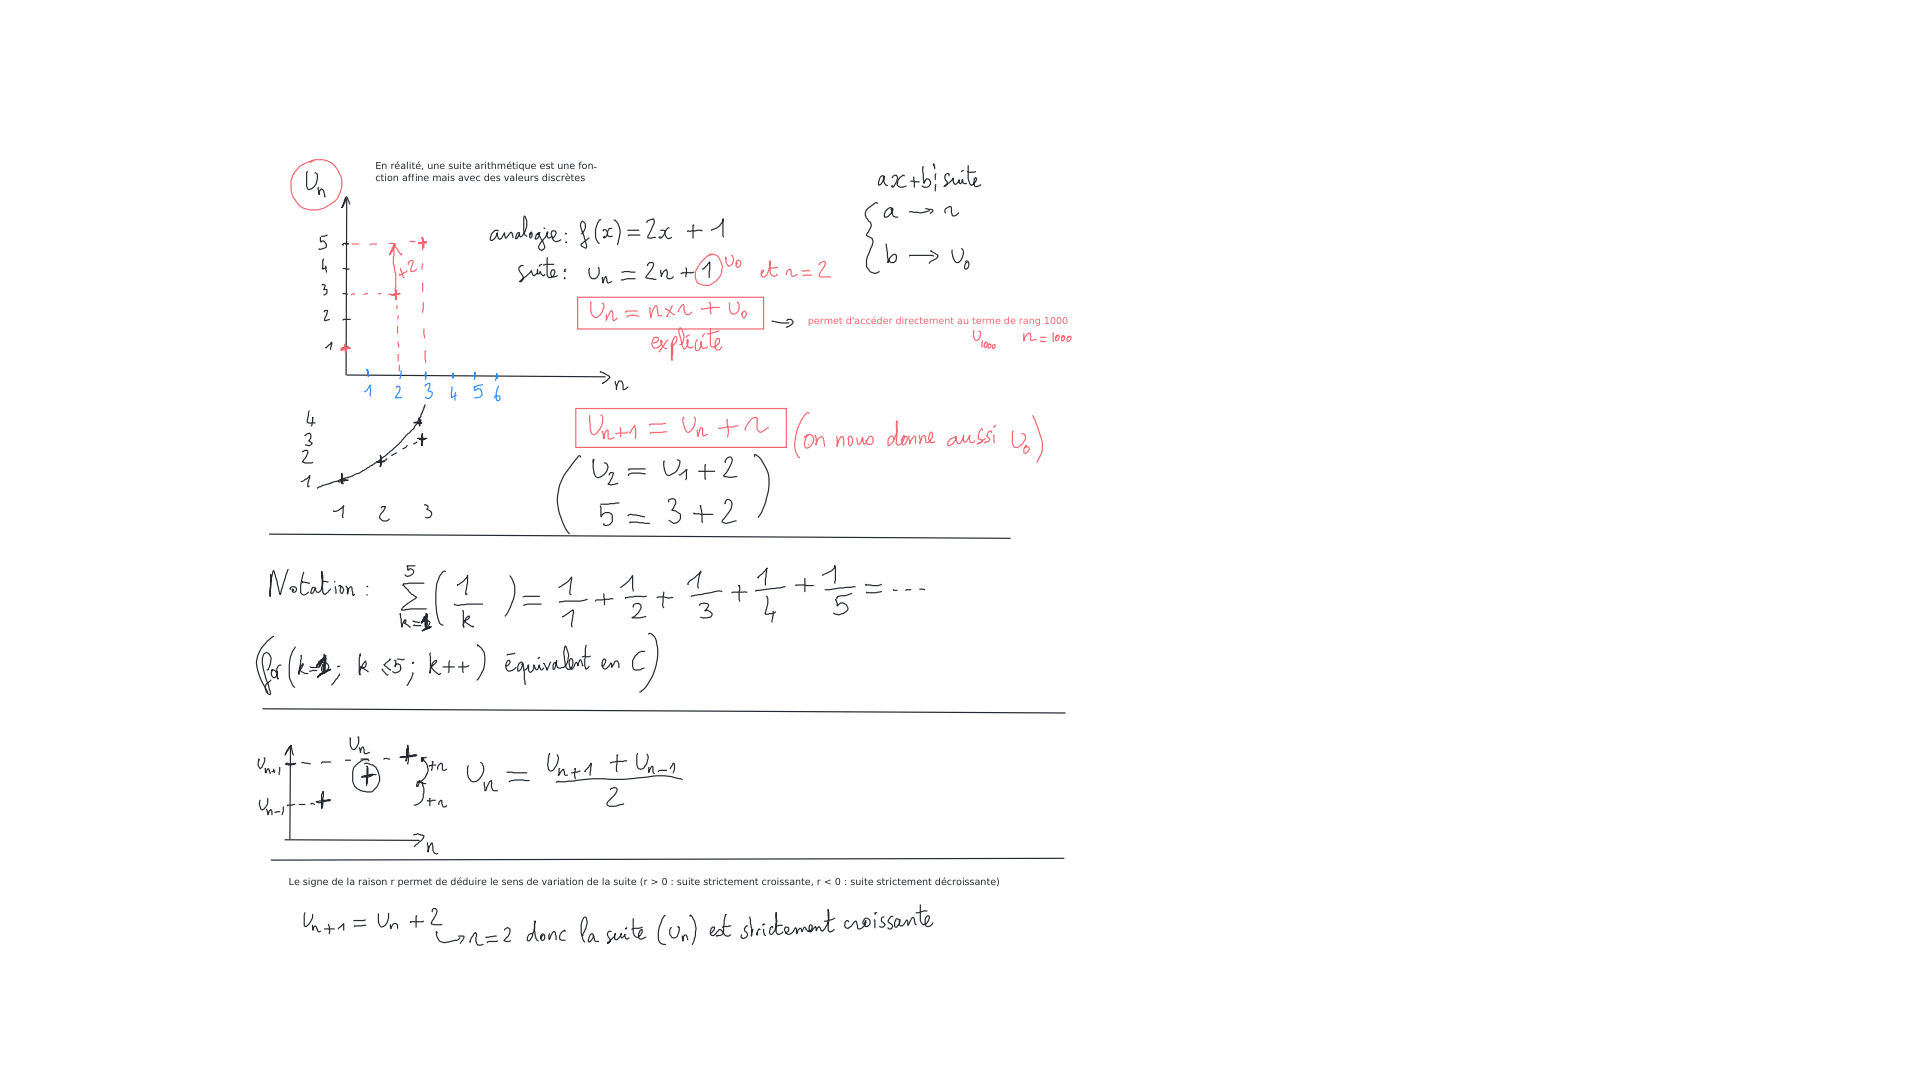 En réalité, une suite arithmétique est une fon-
ction affine mais avec des valeurs discrètes
Un
5
4
3
2
1
+2
1 2 3 4 5 6
n
analogie : f(x) = 2x + 1
suite : un = 2n + 1 U0 et r = 2
Un = n×r + U0
explicite
ax+b ¦ suite
a → r
b → U0
permet d'accéder directement au terme de rang 1000
U1000 n = 1000
4
3
2
1
1 2 3
Un+1 = Un + r (on nous donne aussi U0)
(U2 = U1 + 2
5 = 3 + 2)
Notation : 5 ∑ k=1 (1/k) = 1/1 + 1/2 + 1/3 + 1/4 + 1/5 = ---
(for (k=1; k ≤ 5; k++) équivalent en C)
Un
Un+1
Un-1
+r
+r
n
Un = (Un+1 + Un-1)/2
Le signe de la raison r permet de déduire le sens de variation de la suite (r > 0 : suite strictement croissante, r < 0 : suite strictement décroissante)
Un+1 = Un + 2
→ r = 2 donc la suite (un) est strictement croissante